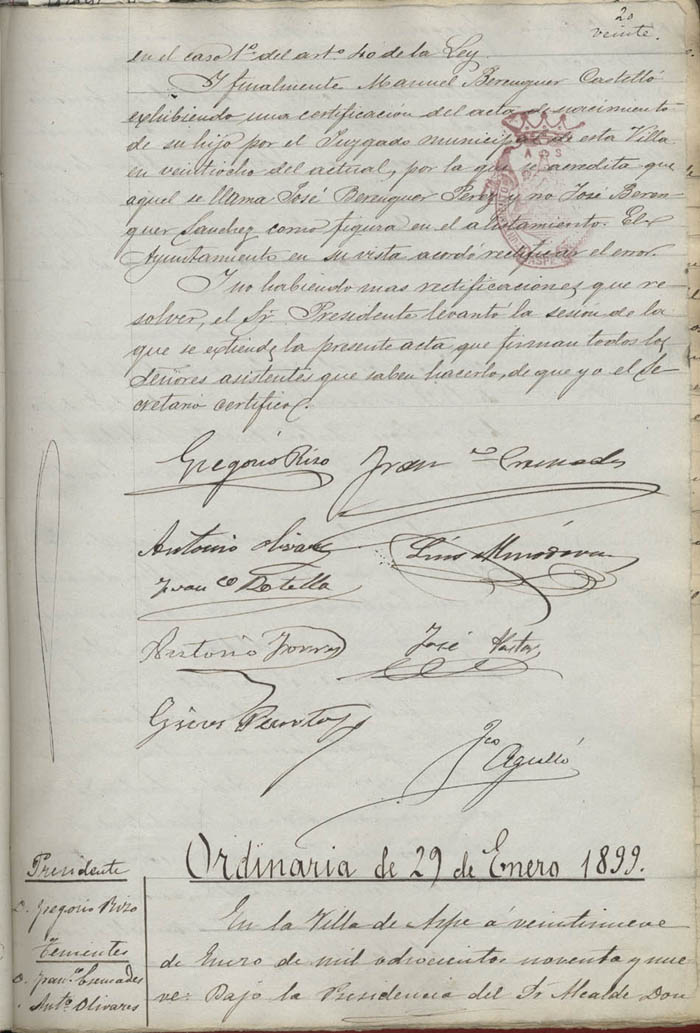 20
veinte.
en el caso 1º del artº 40 de la Ley.
Y finalmente Manuel Berenguer Castelló
exhibiendo una certificación del acta de nacimiento
de su hijo por el Juzgado municipal de esta Villa
en veintiocho del actual, por la que se acredita que
aquel se llama José Berenguer Perez y no José Beren
guer Sanchez como figura en el alistamiento. El
Ayuntamiento en su vista acordó rectificar el error.
Y no habiendo mas rectificaciones que re
solver, el Sr. Presidente levantó la sesión de la
que se extiende la presente acta que firman todos los
Señores asistentes que saben hacerlo, de que yo el Se
cretario certifico.
Gregorio Rizo Franco Cremades
Antonio Olivares Luis Almodovar
Franco Botella
Antonio José Pastor
Gines
Fco Agulló
Ordinaria de 29 de Enero 1899.
Presidente
D. Gregorio Rizo
Tenientes
D. Franco Cremades
" Anto Olivares
En la Villa de Aspe á veintinueve
de Enero de mil ochocientos noventa y nue
ve: Bajo la Presidencia del Sr Alcalde Don